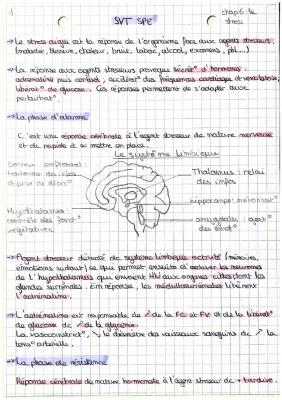 1
SVT SPE
chap 6: le
stress
→ Le stress aigu est la réponse de l'organisme face aux agents stresseurs
(maladie, blessure, chaleur, bruit, tabac, alcool, examens, ptl...)
→ La réponse aux agents stresseurs provoque sécrét° d'hormones:
adrénaline puis cortisol, accélérat° des fréquences cardiaque et ventilatoire,
libérat° de glucose. Ces réponses permettent de s'adapter aux
perturbat°
→ La phase d'alarme
C'est une réponse cérébrale à l'agent stresseur de nature nerveuse
et de rapide à se mettre en place.
Le système limbique
Cortex préfrontal:
traitement des infos
et prise de décis°
Thalamus: relai
des infos
hippocampe: mémorisat°
Hypothalamus:
contrôle des fonct°
végétatives
amygdale: gest°
des émot°
→ Agent stresseur détecté: le système limbique activité (mémoire,
émotions surtout) ce qui permet ensuite d'activer les neurones
de l'hypothalamus qui envoient MN aux organes cibles dont les
glandes surrénales. En réponse, les médullosurrénales libèrent
l'adrénaline.
→ L'adrénaline est responsable de ↗ de la FC et FV et de la libérat°
de glucose ds ↗ de la glycémie.
La vasoconstrict°, ↘ le diamètre des vaisseaux sanguins dc ↗ la
tens° artérielle.
→ La phase de résistance
Réponse cérébrale de nature hormonale à l'agent stresseur dc + tardive.